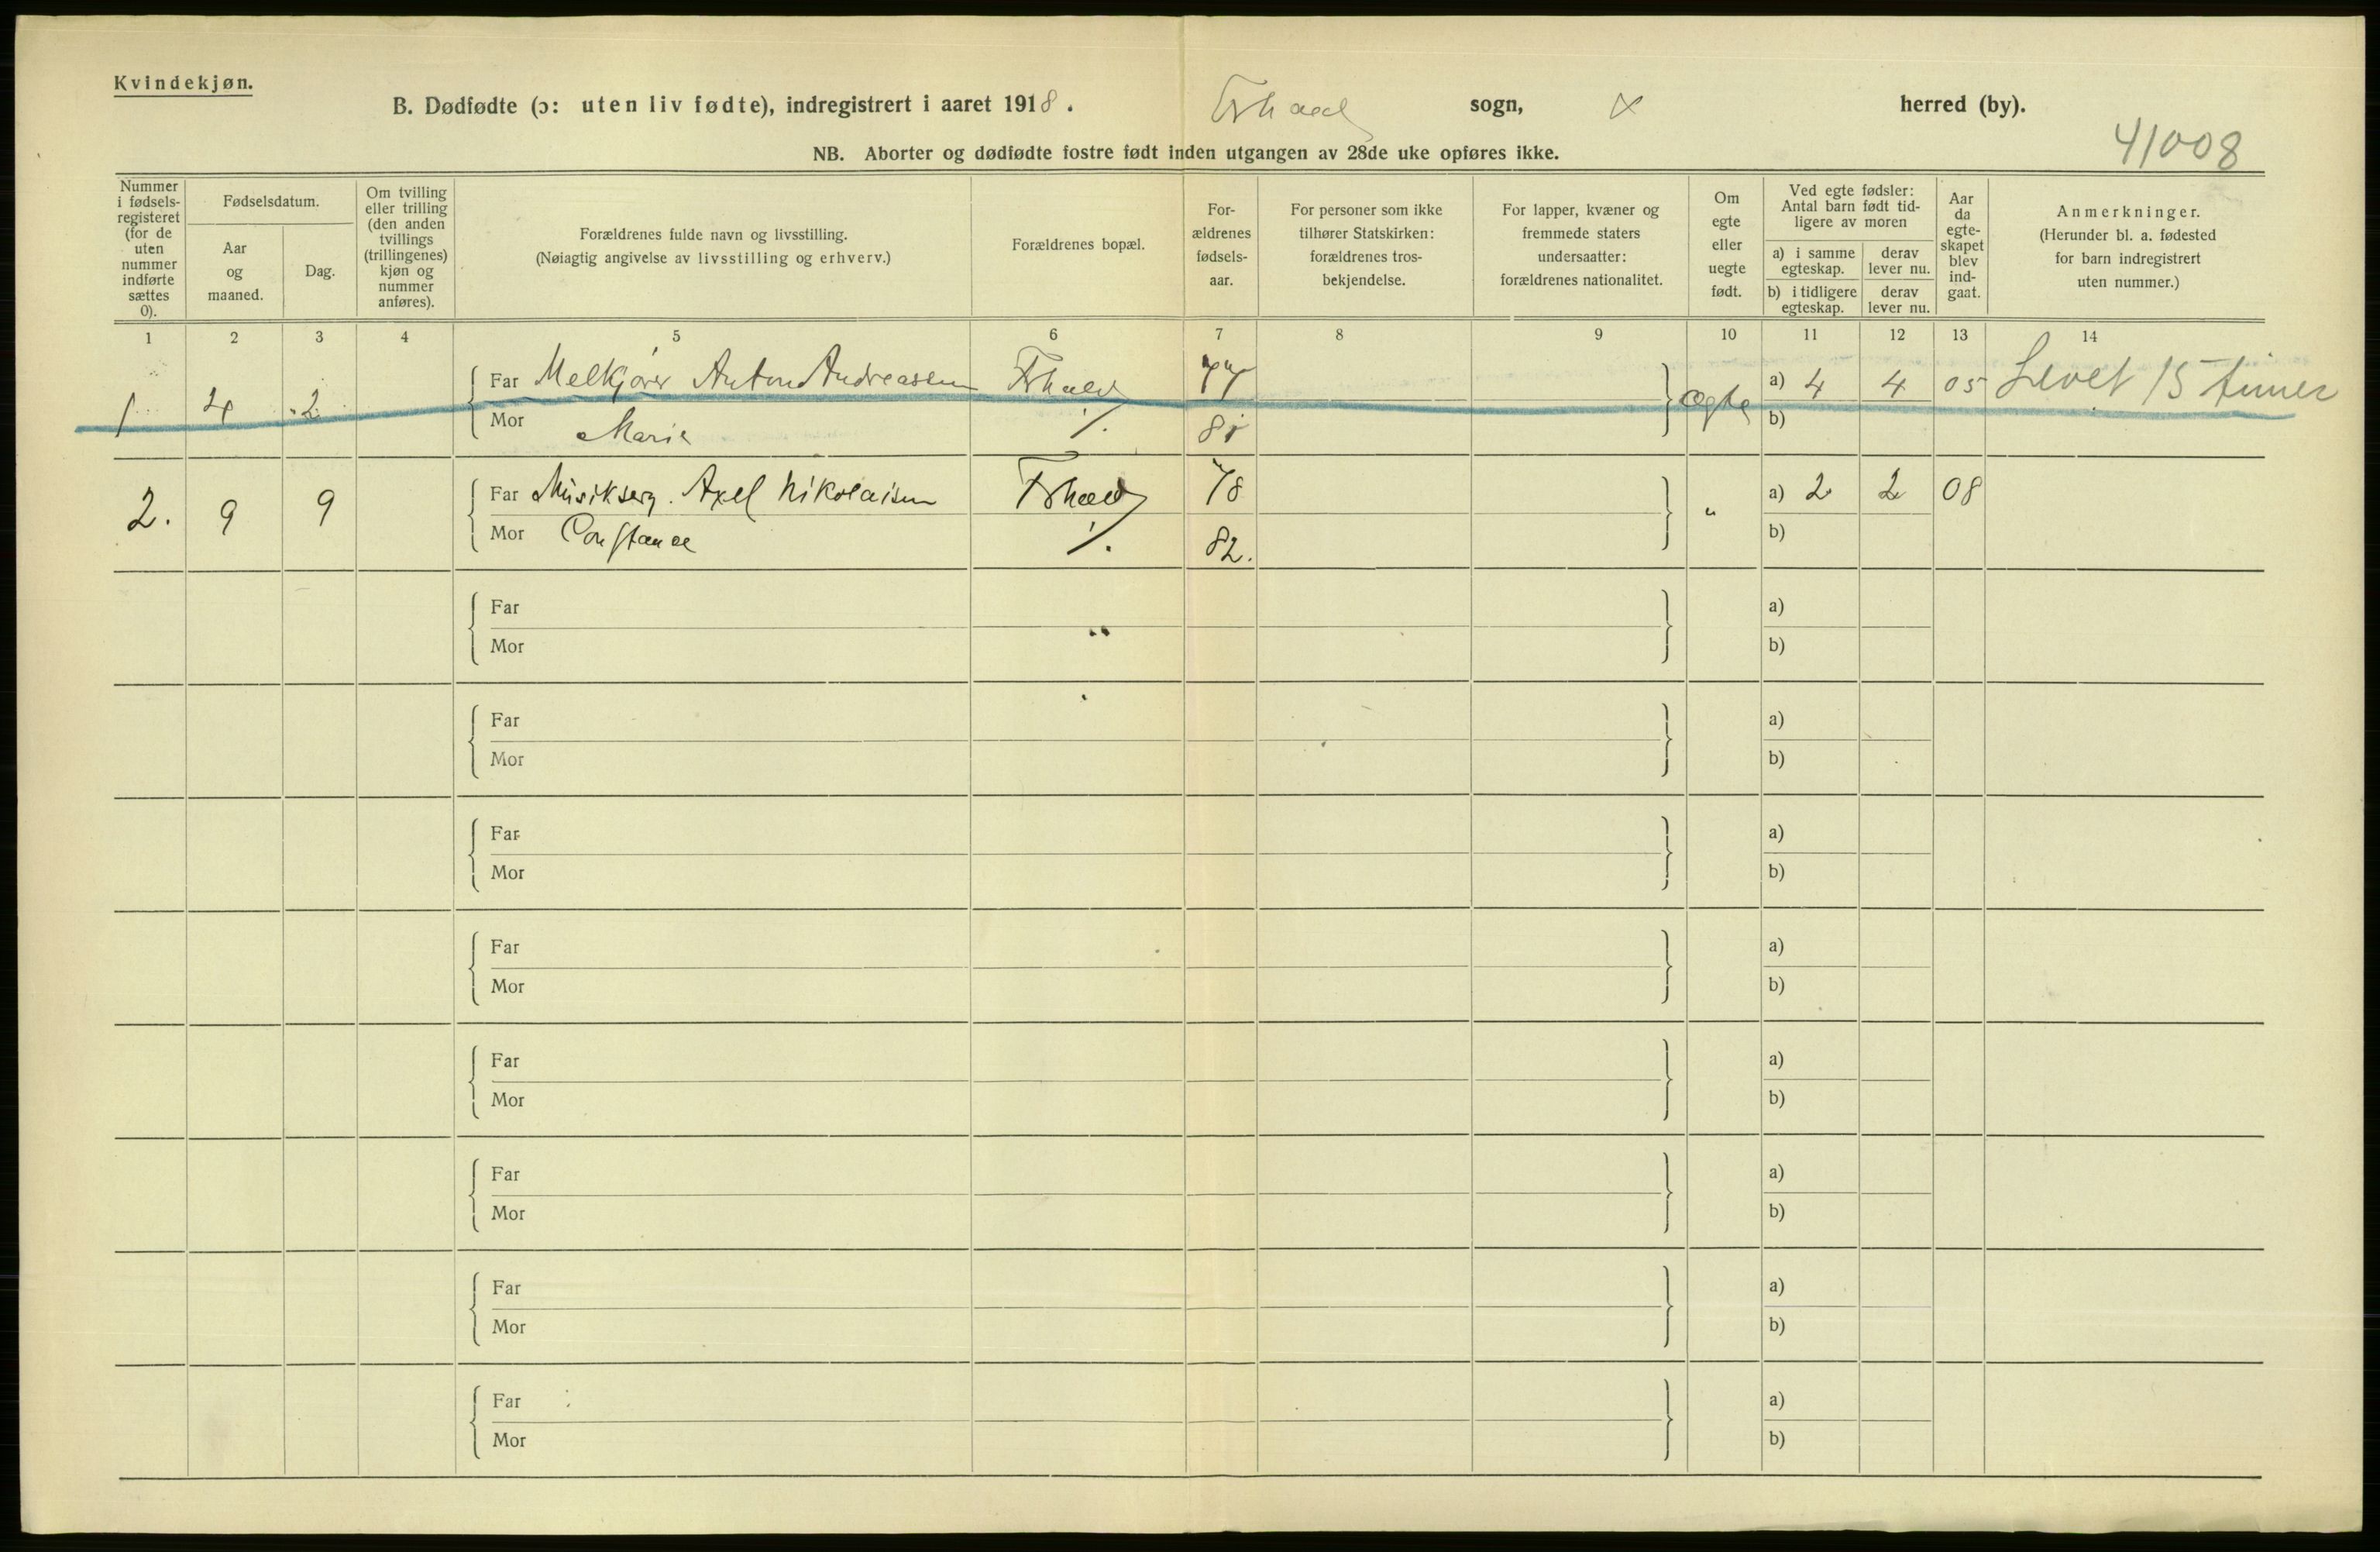 Kvindekjøn.
B. Dødfødte (ɔ: uten liv fødte), indregistrert i aaret 1918. Frhald sogn, herred (by).
41008
NB. Aborter og dødfødte fostre født inden utgangen av 28de uke opføres ikke.
Nummer i fødsels-registeret (for de uten nummer indførte sættes 0).
Fødselsdatum.
Aar og maaned.
Dag.
Om tvilling eller trilling (den anden tvillings (trillingenes) kjøn og nummer anføres).
Forældrenes fulde navn og livsstilling.
(Nøiagtig angivelse av livsstilling og erhverv.)
Forældrenes bopæl.
For-ældrenes fødsels-aar.
For personer som ikke tilhører Statskirken: forældrenes tros-bekjendelse.
For lapper, kvæner og fremmede staters undersaatter: forældrenes nationalitet.
Om egte eller uegte født.
Ved egte fødsler: Antal barn født tid-ligere av moren
a) i samme egteskap.
derav lever nu.
b) i tidligere egteskap.
derav lever nu.
Aar da egte-skapet blev ind-gaat.
Anmerkninger.
(Herunder bl. a. fødested for barn indregistrert uten nummer.)
1 2 3 4 5 6 7 8 9 10 11 12 13 14
1 4 2 Far Melkjører Anton Andreassen Frhald 77 egte a) 4 4 05 Levet 15 timer
Mor Marie ./. 81 b)
2. 9 9 Far Musikserg. Axel Nikolaisen Frhald 78 " a) 2 2 08
Mor Constance ./. 82. b)
Far a)
Mor b)
Far a)
Mor b)
Far a)
Mor b)
Far a)
Mor b)
Far a)
Mor b)
Far a)
Mor b)
Far a)
Mor b)
Far a)
Mor b)